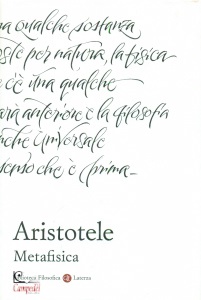 na qualche sostanza
per natura, la fisica
c'è una qualche
sarà anteriore e la filosofia
anche universale
senso che è prima_
Aristotele
Metafisica
Biblioteca Filosofica
Laterza